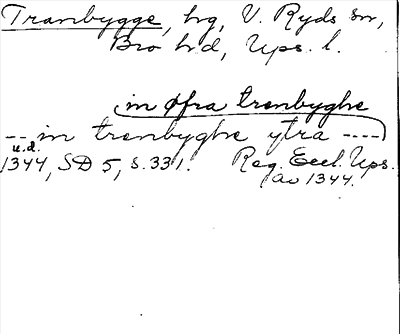 Tranbygge, hg, V. Ryds sn,
Bro hd, Ups. l.
in øfra trenbyghe
-- in trenbyghe ytra ----
u.d.
1344, SD 5, s. 331. Reg. Eccl. Ups.
av 1344.